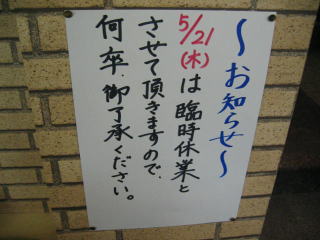 〜お知らせ〜
5/21(木)は臨時休業と
させて頂きますので、
何卒、御了承ください。